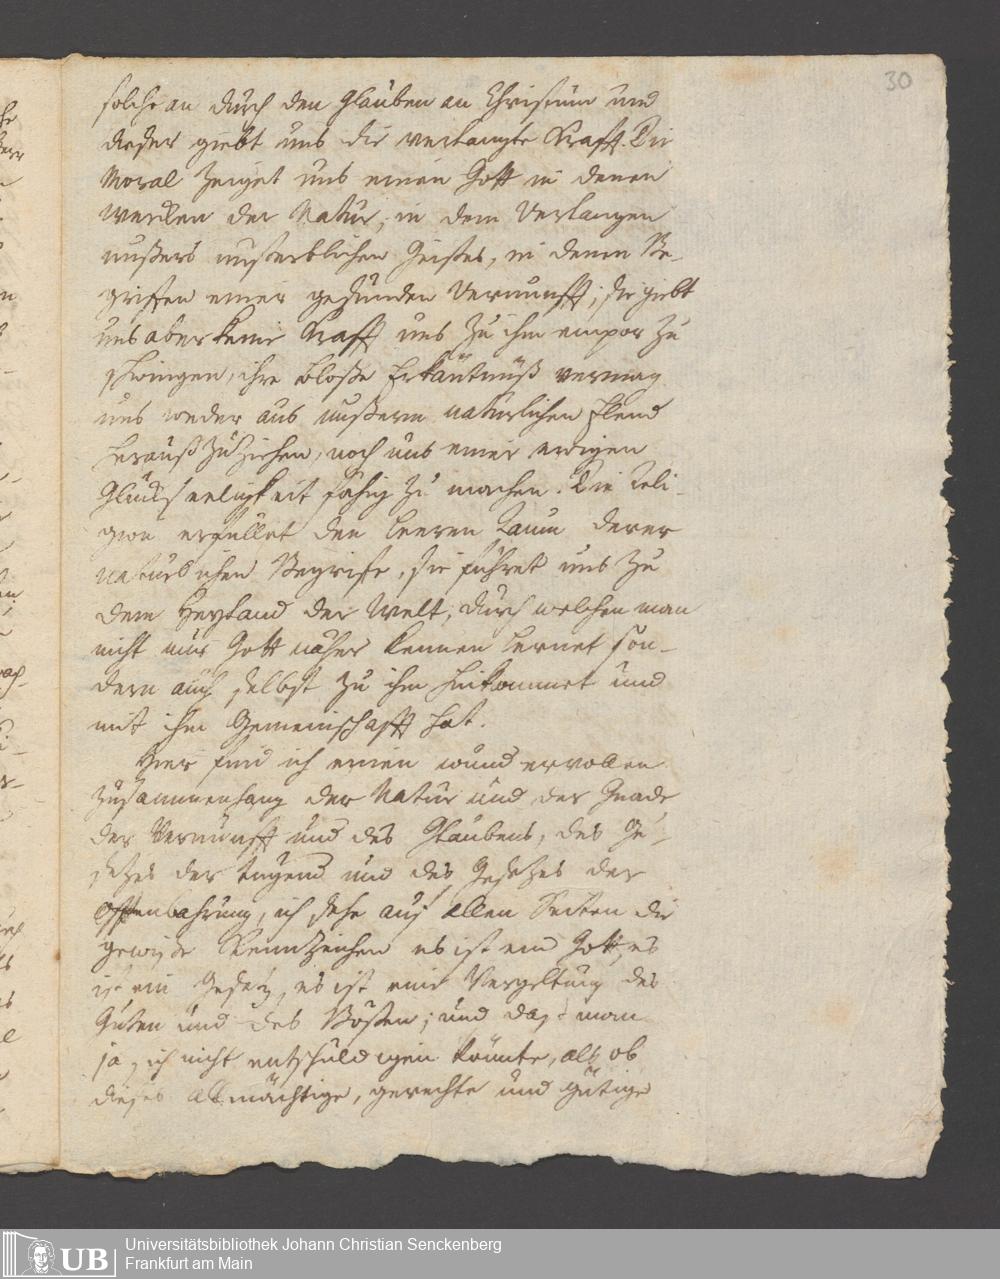 30
solche an durch den Glauben an Christum und
dieser giebt uns die verlangte Krafft. Die
Moral zeiget uns einen Gott in denen
Wercken der Natur, in dem Verlangen
unßers unsterblichen Geistes, in denen Be-
griffen einer gesunden Vernunfft; sie giebt
uns aber keine Krafft uns zu ihm empor zu
schwingen, ihre bloße Erkäntnüß vermag
uns weder aus unßerm natürlichen Elend
herauß zu ziehen, noch uns einer ewigen
Glückseeligkeit fähig zu machen. Die Reli-
gion erfüllet den leeren Raum derer
natürlichen Begriffe, sie führet uns zu
dem Heyland der Welt, durch welchen man
nicht nur Gott näher kennen lernet son-
dern auch selbst zu ihm hinkommet und
mit ihm Gemeinschafft hat.
Hier find ich einen wundervollen
Zusammenhang der Natur und der Gnade,
der Vernunfft und des Glaubens, des Ge-
setzes der Tugend und des Gesetzes der
Offenbahrung, ich sehe auf allen Seiten die
gewiße Kennzeichen es ist ein Gott, es
ist ein Gesetz, es ist eine Vergeltung des
Guten und des Bößen; und daß man
ja sich nicht entschuldigen könnte, als ob
dieses allmächtige, gerechte und gütige
UB
Universitätsbibliothek Johann Christian Senckenberg
Frankfurt am Main